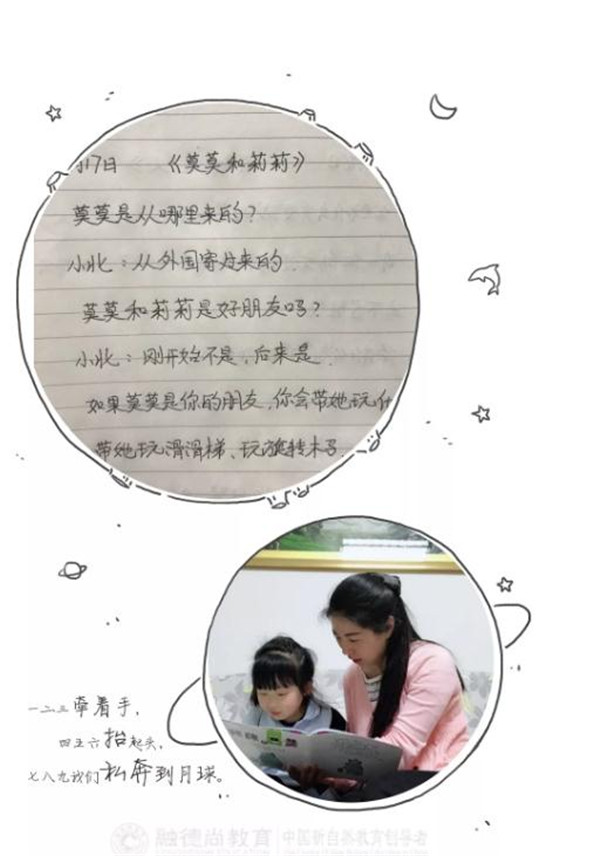 月17日 《莫莫和莉莉》
莫莫是从哪里来的？
小北：从外国寄过来的
莫莫和莉莉是好朋友吗？
小北：刚开始不是，后来是．
如果莫莫是你的朋友，你会带她玩什
带她玩滑滑梯、玩旋转木马．
一二三牵着手，
四五六抬起头，
七八九我们私奔到月球。
融德尚教育 中国新自然教育创导者